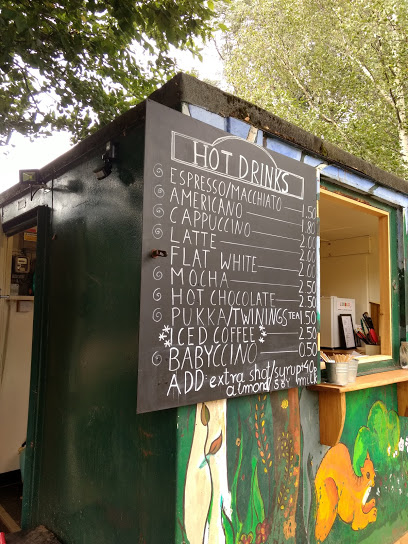 HOT DRINKS
ESPRESSO/MACCHIATO 1.50
AMERICANO 1.80
CAPPUCCINO 2.00
LATTE 2.00
FLAT WHITE 2.00
MOCHA 2.50
HOT CHOCOLATE 2.50
PUKKA/TWININGS TEA 1.50
ICED COFFEE 2.50
BABYCCINO 0.50
ADD: extra shot/syrup 40p
almond soy milk